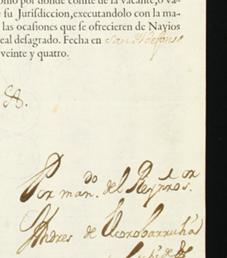 omo por donde conste de la vacante, o va-
e su Jurisdiccion, executandolo con la ma-
las ocasiones que se ofrecieren de Nayios
eal desagrado. Fecha en San Ildefonso
veinte y quatro.
Por man.do del Rey nro s.or
Andres de